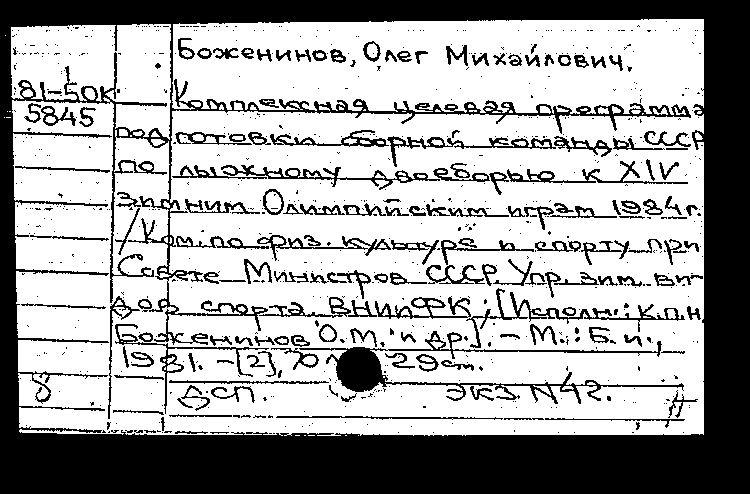 Боженинов, Олег Михайлович.
81-50к
5845
Комплексная целевая программа
подготовки сборной команды СССР
по лыжному двоеборью к XIV
зимним Олимпийским играм 1984г.
/Ком. по физ. культуре и спорту при
Совете Министров СССР. Упр. зим. ви-
дов спорта. ВНИИФК; [Исполн.: к.п.н.
Боженинов О.М. и др.]. - М.: Б. и.,
1981. - [2], 70 29см.
8 ДСП. экз N42.